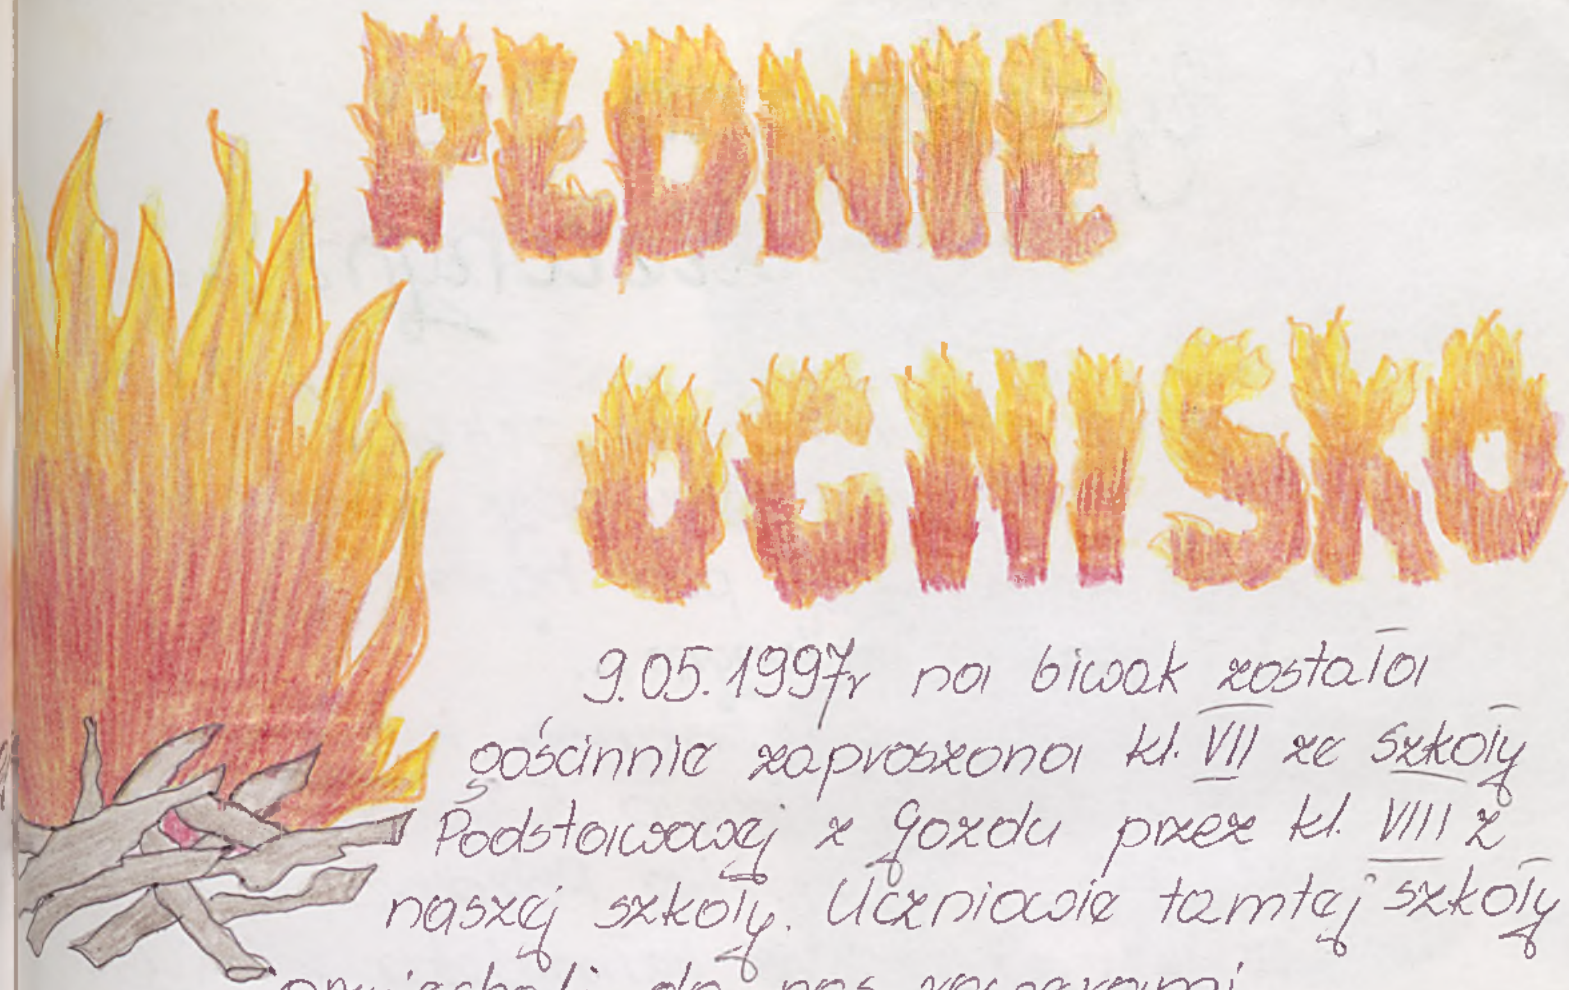 PŁONIE
OGNISKO
9.05.1997r na biwak została
gościnnie zaproszona kl. VII ze szkoły
Podstawowej z Gozdu przez kl. VIII z
naszej szkoły. Uczniowie tamtej szkoły
przyjechali do nas rowerami